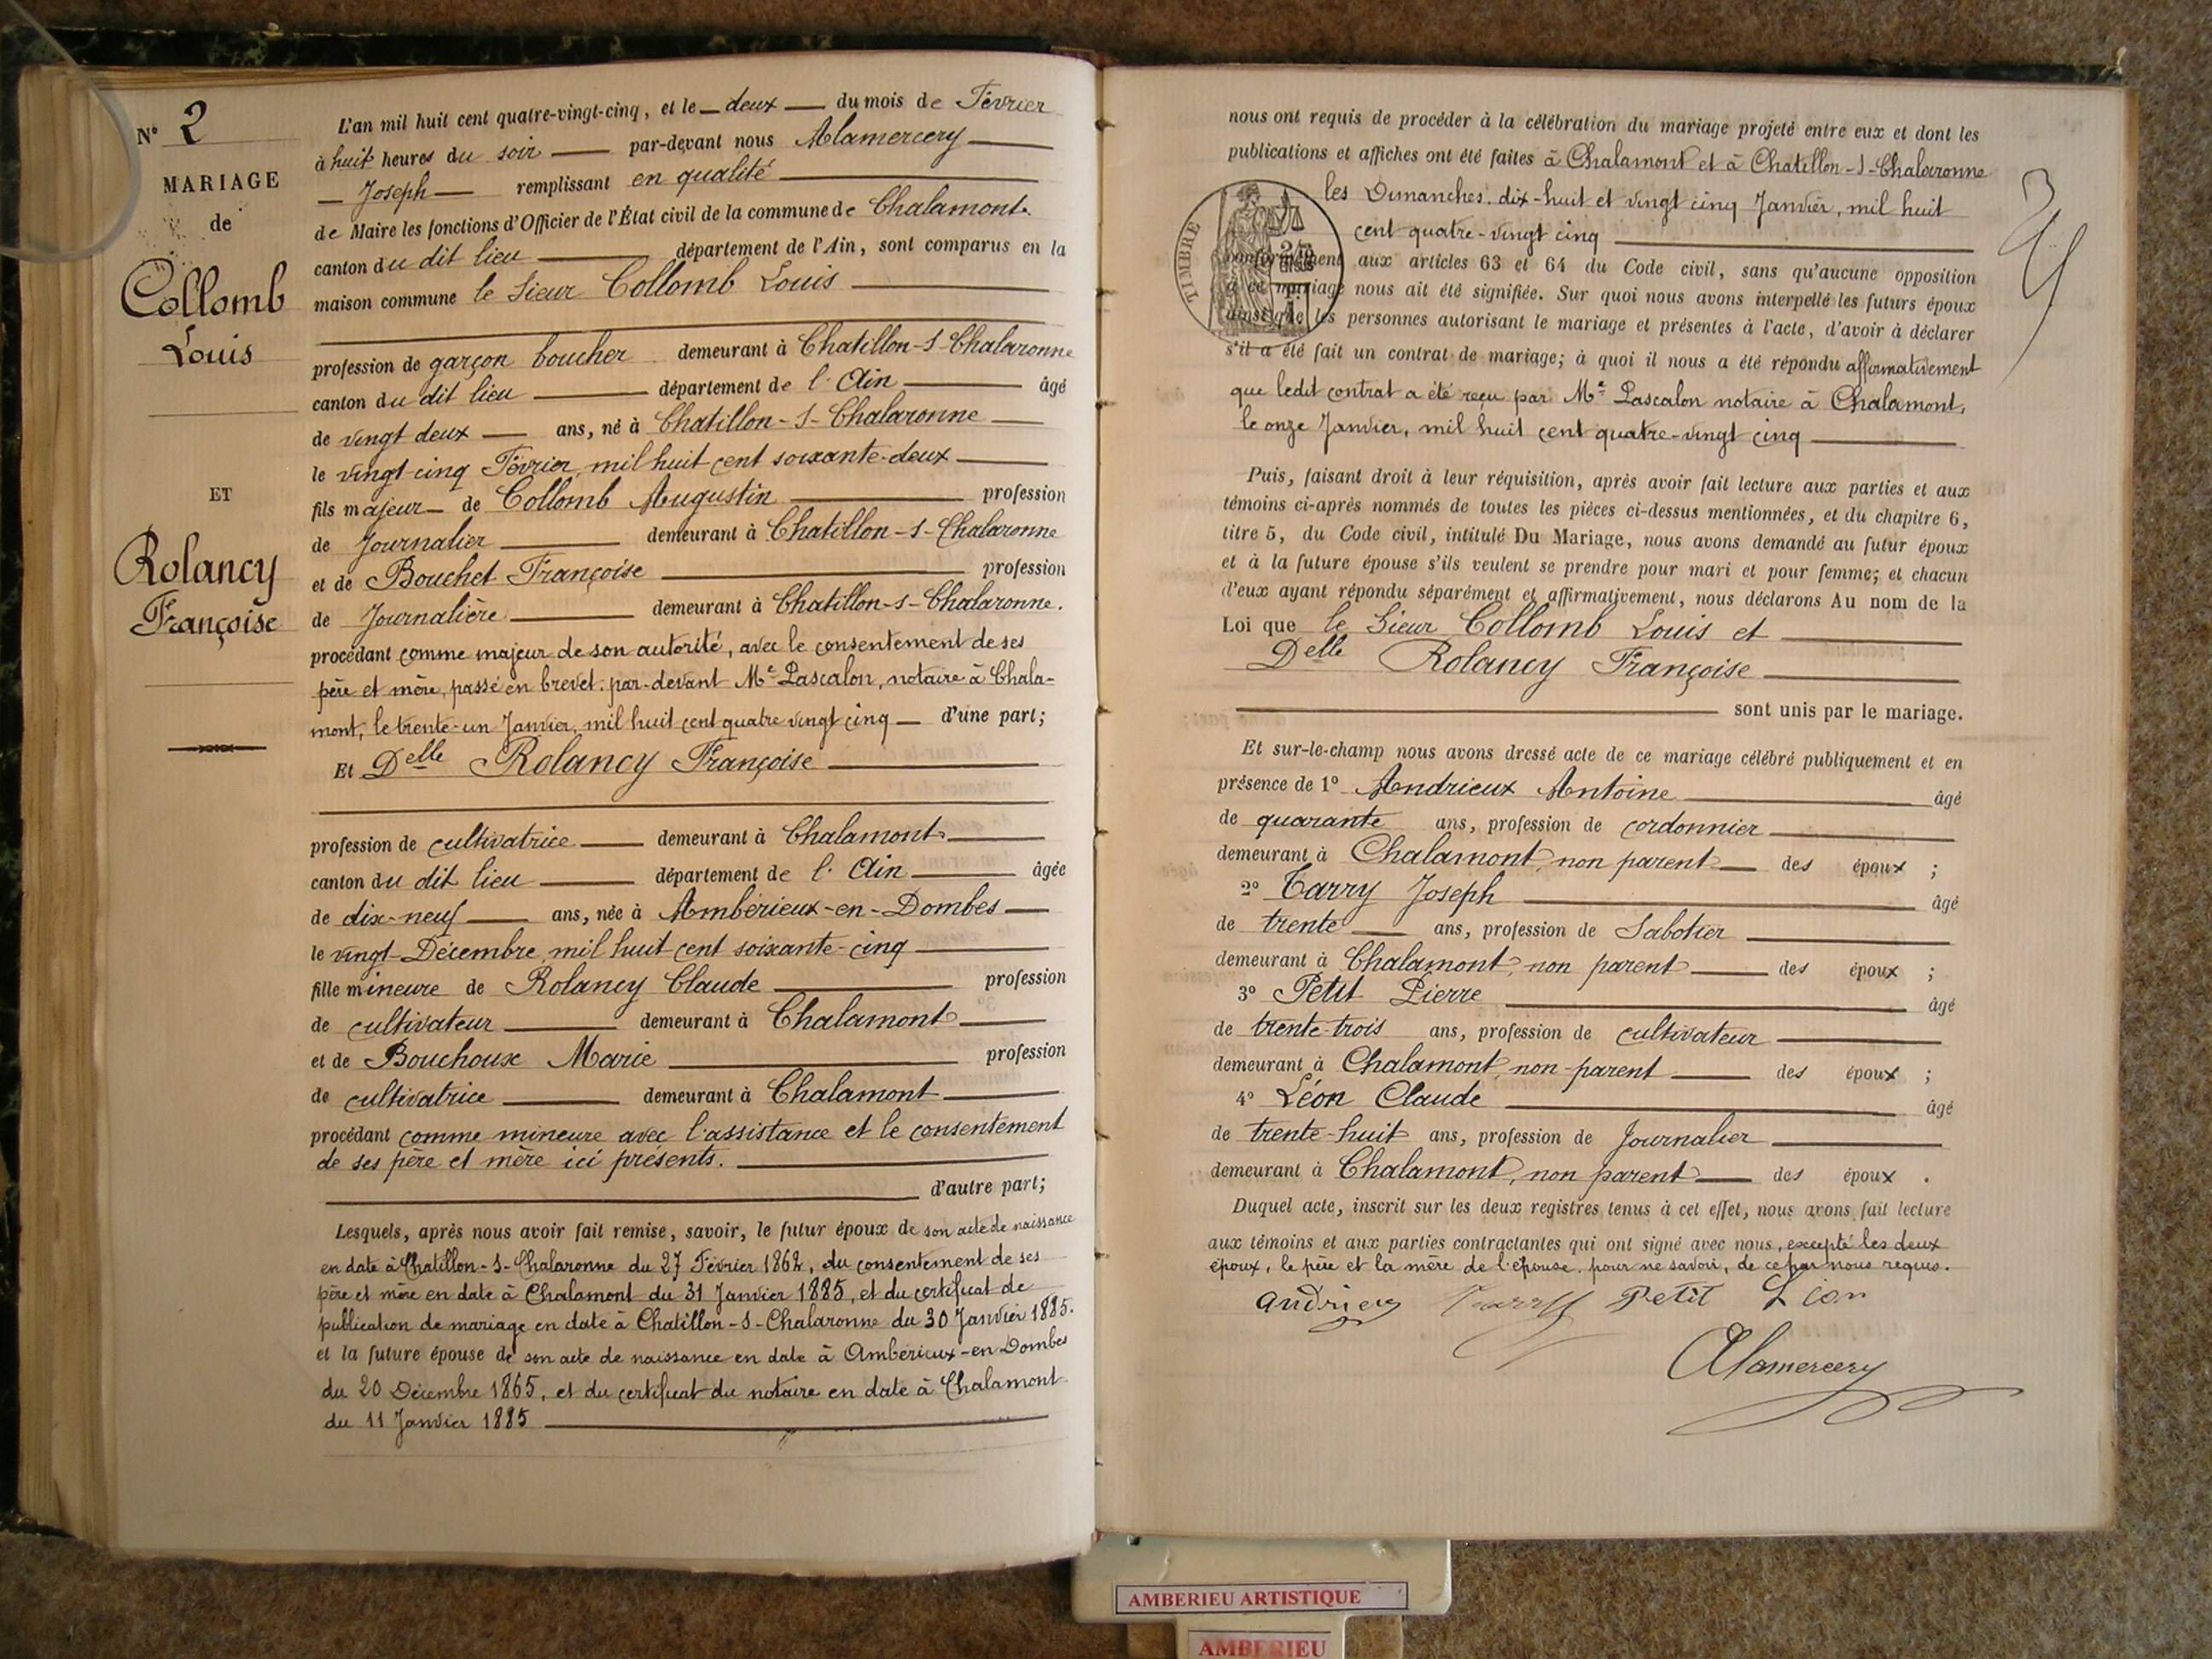 N° 2
MARIAGE
de
Collomb
Louis
ET
Rolancy
Françoise
L'an mil huit cent quatre-vingt-cinq, et le deux du mois de Février
à huit heures du soir par-devant nous Alamercery
Joseph remplissant en qualité
de Maire les fonctions d'Officier de l'État civil de la commune de Chalamont.
canton du dit lieu département de l'Ain, sont comparus en la
maison commune le Sieur Collomb Louis
profession de garçon boucher demeurant à Chatillon-s-Chalaronne
canton du dit lieu département de l'Ain âgé
de vingt deux ans, né à Chatillon-s-Chalaronne
le vingt-cinq Février, mil huit cent soixante-deux
fils majeur de Collomb Augustin profession
de Journalier demeurant à Chatillon-s-Chalaronne
et de Bouchet Françoise profession
de Journalière demeurant à Chatillon-s-Chalaronne.
procédant comme majeur de son autorité, avec le consentement de ses
père et mère, passé en brevet par-devant Me Pascalon, notaire à Chala-
mont, le trente-un Janvier, mil huit cent quatre vingt cinq d'une part;
Et Delle Rolancy Françoise
profession de cultivatrice demeurant à Chalamont
canton du dit lieu département de l'Ain âgée
de dix-neuf ans, née à Ambérieux-en-Dombes
le vingt Décembre, mil huit cent soixante-cinq
fille mineure de Rolancy Claude profession
de cultivateur demeurant à Chalamont
et de Bouchoux Marie profession
de cultivatrice demeurant à Chalamont
procédant comme mineure avec l'assistance et le consentement
de ses père et mère ici présents.
d'autre part;
Lesquels, après nous avoir fait remise, savoir, le futur époux de son acte de naissance
en date à Chatillon-s-Chalaronne du 27 Février 1862, du consentement de ses
père et mère en date à Chalamont du 31 Janvier 1885, et du certificat de
publication de mariage en date à Chatillon-s-Chalaronne du 30 Janvier 1885.
et la future épouse de son acte de naissance en date à Ambérieux-en Dombes
du 20 Décembre 1865, et du certificat du notaire en date à Chalamont
du 11 Janvier 1885
nous ont requis de procéder à la célébration du mariage projeté entre eux et dont les
publications et affiches ont été faites à Chalamont et à Chatillon-s-Chalaronne
les Dimanches dix-huit et vingt cinq Janvier, mil huit
cent quatre-vingt cinq
TIMBRE
conformément aux articles 63 et 64 du Code civil, sans qu'aucune opposition
à ce mariage nous ait été signifiée. Sur quoi nous avons interpellé les futurs époux
ainsi que les personnes autorisant le mariage et présentes à l'acte, d'avoir à déclarer
s'il a été fait un contrat de mariage; à quoi il nous a été répondu affirmativement
que ledit contrat a été reçu par Me Pascalon notaire à Chalamont,
le onze Janvier, mil huit cent quatre-vingt cinq
Puis, faisant droit à leur réquisition, après avoir fait lecture aux parties et aux
témoins ci-après nommés de toutes les pièces ci-dessus mentionnées, et du chapitre 6,
titre 5, du Code civil, intitulé Du Mariage, nous avons demandé au futur époux
et à la future épouse s'ils veulent se prendre pour mari et pour femme; et chacun
d'eux ayant répondu séparément et affirmativement, nous déclarons Au nom de la
Loi que le Sieur Collomb Louis et
Delle Rolancy Françoise
sont unis par le mariage.
Et sur-le-champ nous avons dressé acte de ce mariage célébré publiquement et en
présence de 1° Andrieux Antoine âgé
de quarante ans, profession de cordonnier
demeurant à Chalamont, non parent des époux ;
2° Tarry Joseph âgé
de trente ans, profession de Sabotier
demeurant à Chalamont, non parent des époux ;
3° Petit Pierre âgé
de trente-trois ans, profession de cultivateur
demeurant à Chalamont, non-parent des époux ;
4° Léon Claude âgé
de trente-huit ans, profession de Journalier
demeurant à Chalamont, non parent des époux .
Duquel acte, inscrit sur les deux registres tenus à cet effet, nous avons fait lecture
aux témoins et aux parties contractantes qui ont signé avec nous, excepté les deux
époux, le père et la mère de l'épouse, pour ne savoir, de ce par nous requis.
andrieux Tarry Petit Léon
Alamercery
AMBERIEU ARTISTIQUE
AMBERIEU